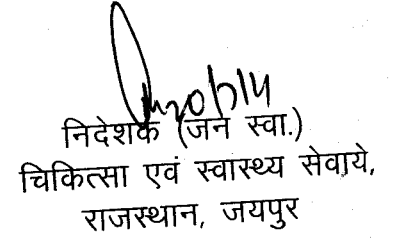 निदेशक (जन स्वा.)
चिकित्सा एवं स्वास्थ्य सेवाये,
राजस्थान, जयपुर